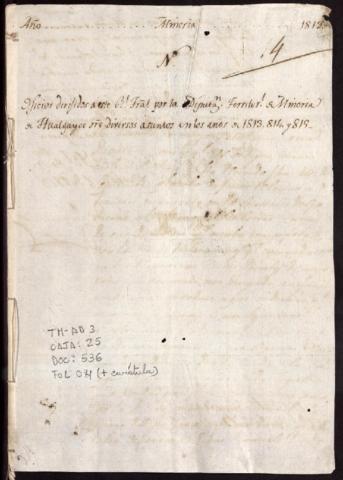 Año Mineria 1813
Nº 4
Oficios dirijidos a este Rl Tral por la Diputn. Territorl. de Mineria
de Hualgayoc sre diversos asuntos en los años de 1813. 814. y 815
TM-AD 3
CAJA: 25
DOC: 536
FOL 074 (+ carátula)